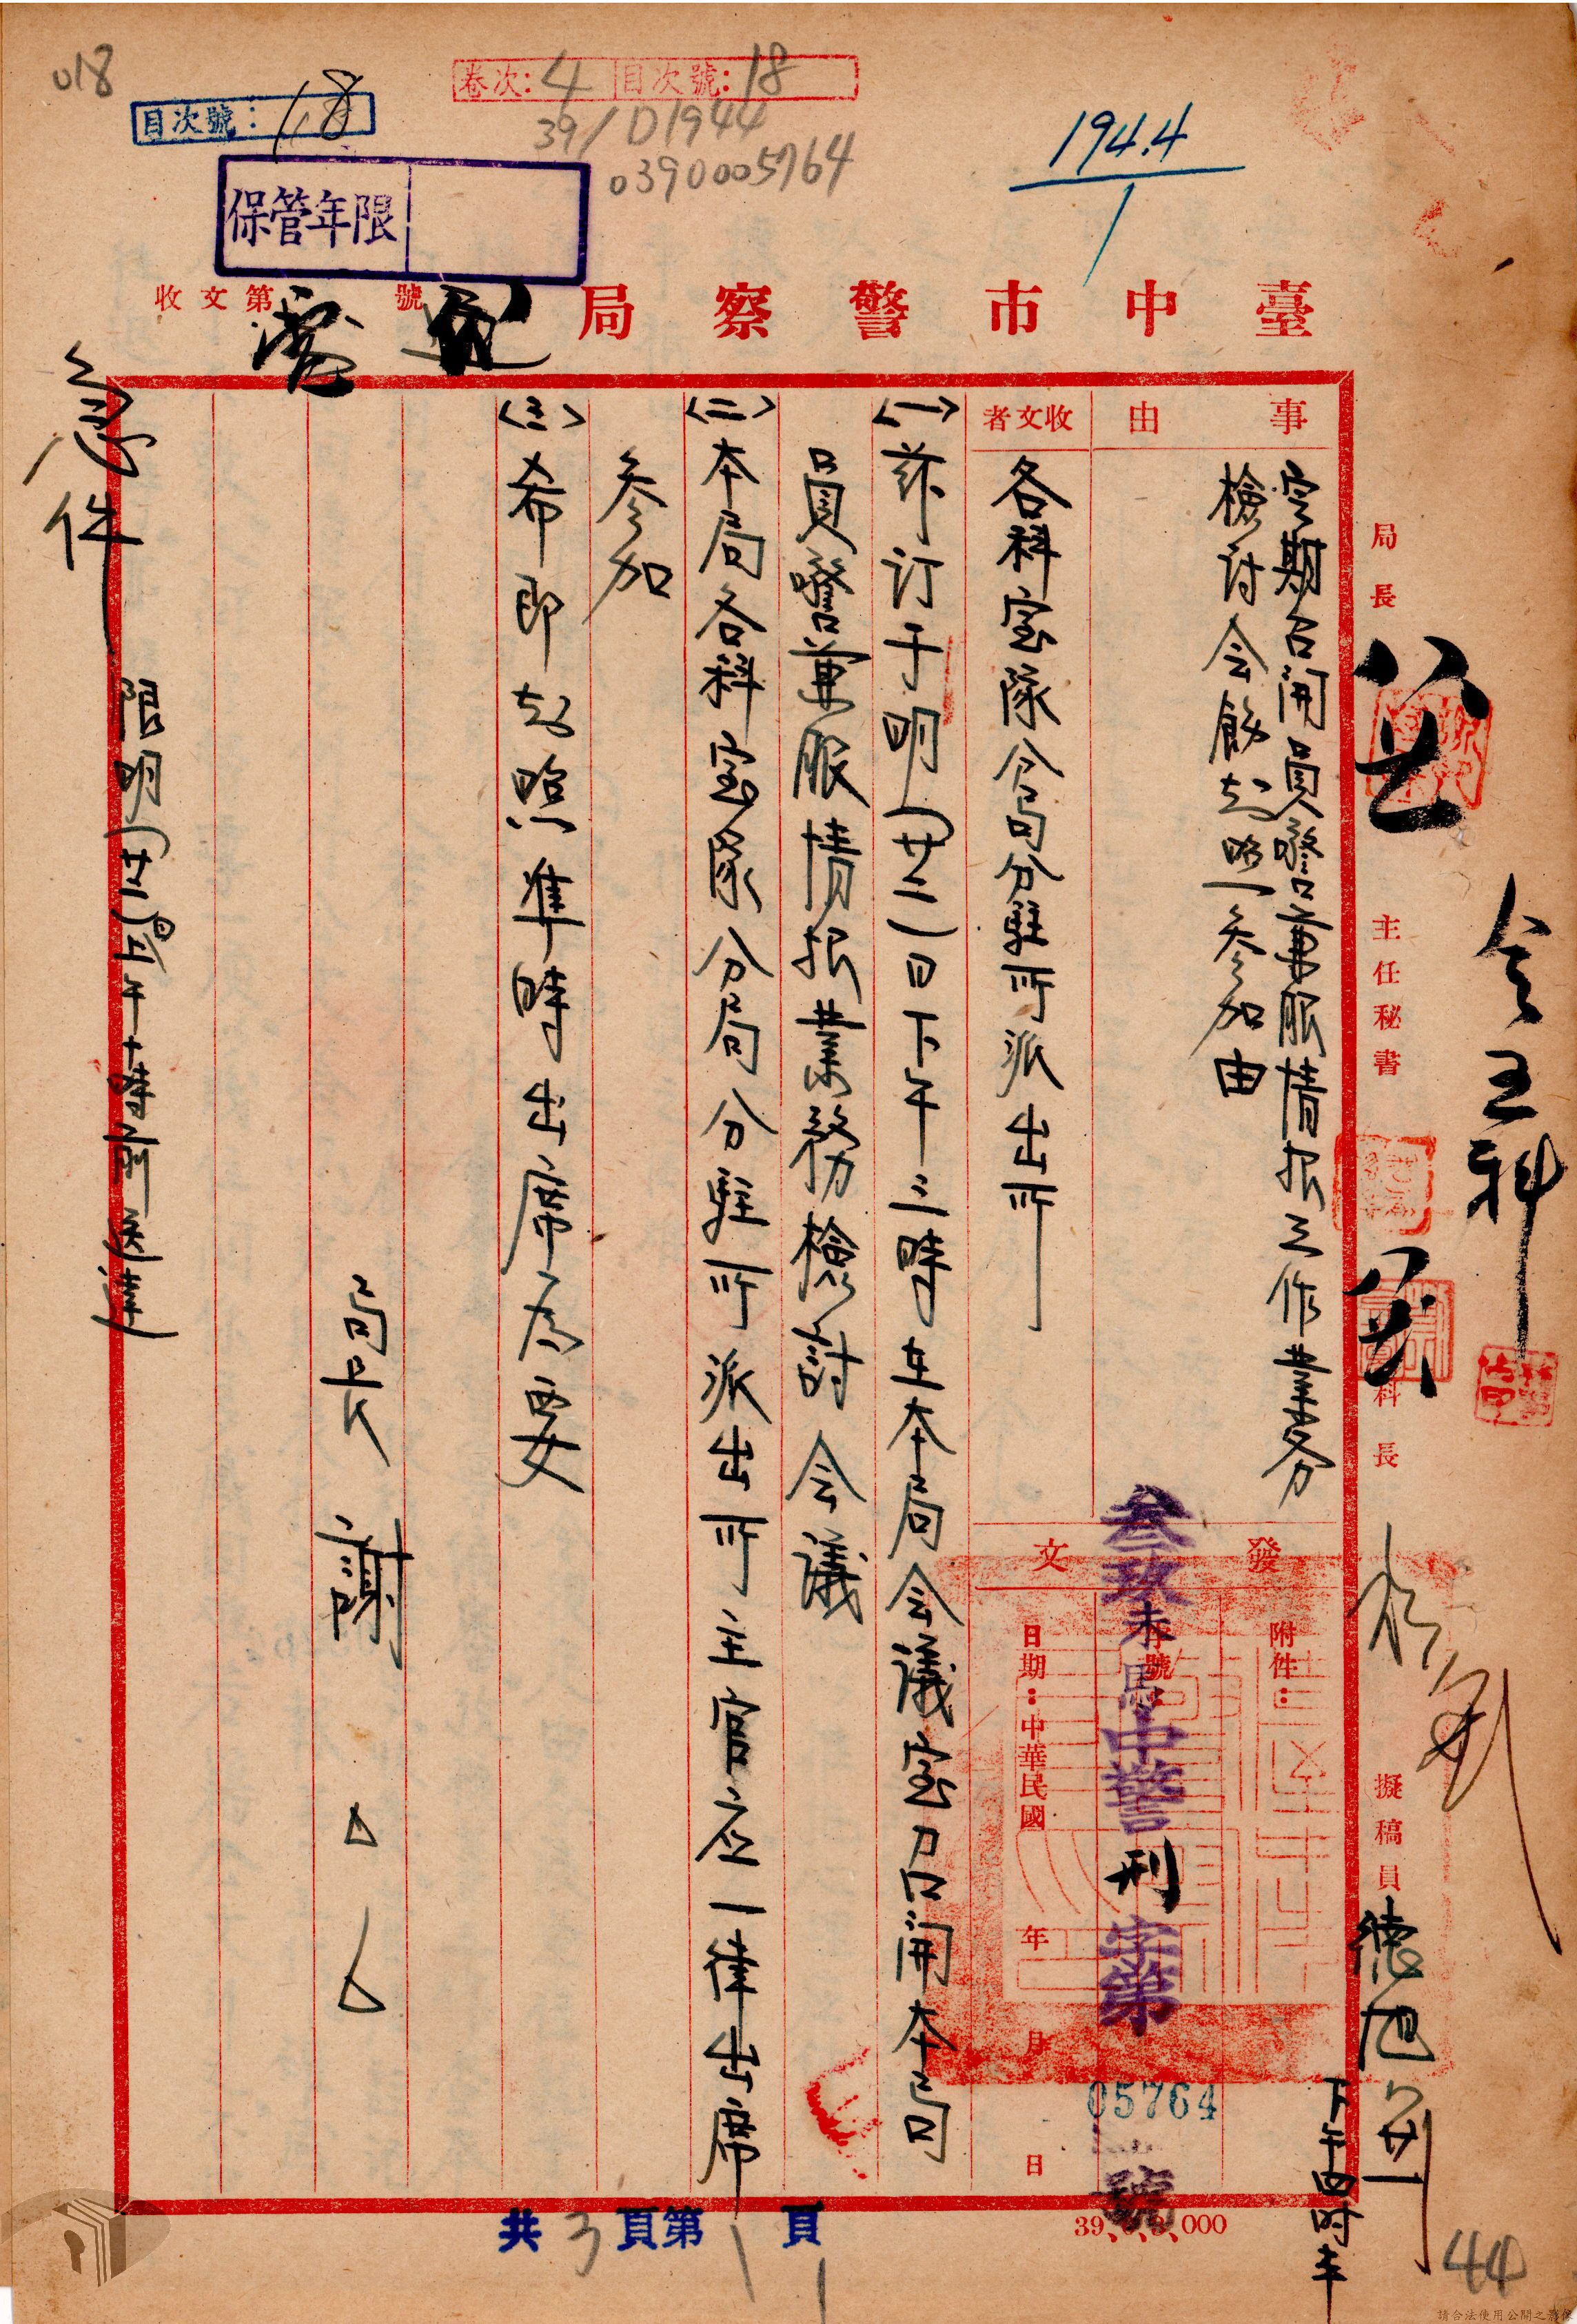 018
目次號：18
卷次：4 目次號：18
39/D1944
0390005764
194.4
1
保管年限
臺中市警察局
收文第 號
事由
定期召開員警兼服情報工作業務
檢討会飭知照参加由
收文者
各科室隊分局分駐所派出所
〈一〉茲订于明(廿二)日下午三時在本局会議室召開本局
員警兼服情报業務檢討会議
〈二〉本局各科室隊分局分駐所派出所主官应一律出席
参加
〈三〉希即知照準時出席为要
局長 謝
急件
限明(廿二)日上午十時前送達
局長
主任秘書
科長
擬稿員
会五科
下午四时半
發文
附件：
字號
叁玖未馬中警刑字第
05764
號
日期：中華民國 年 月 日
共3頁第1頁
39,6,3,000
44
請合法使用公開之影像